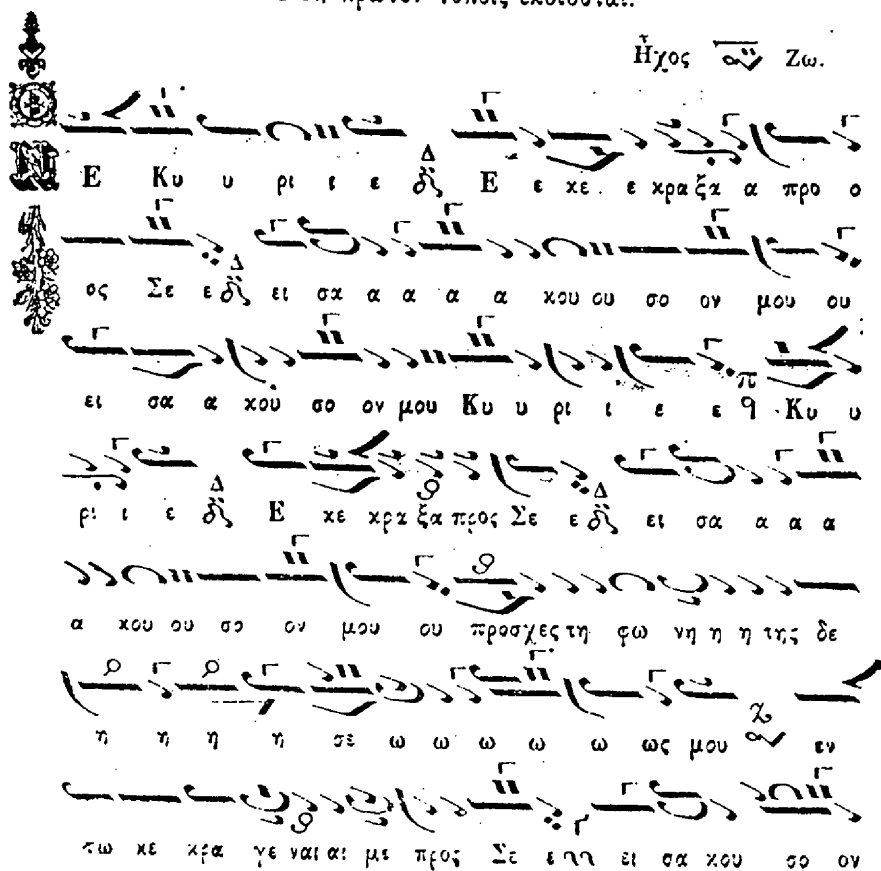 πρῶτον τύποις ἐκδίδοται.
Ἦχος Ζω.
Ε Κυ υ ρι ι ε Δ Ε ε κε ε κρα ξα α προ ο
ος Σε ε Δ ει σα α α α α κου ου σο ον μου ου
ει σα α κου σο ον μου Κυ υ ρι ι ε ε π Κυ υ
ρι ι ε Δ Ε κε κρα ξα προς Σε ε Δ ει σα α α α
α κου ου σο ον μου ου προσχες τη φω νη η η της δε
η η η η σε ω ω ω ω ω ως μου Ζ εν
τω κε κρα γε ναι αι με προς Σε ε ει σα κου σο ον